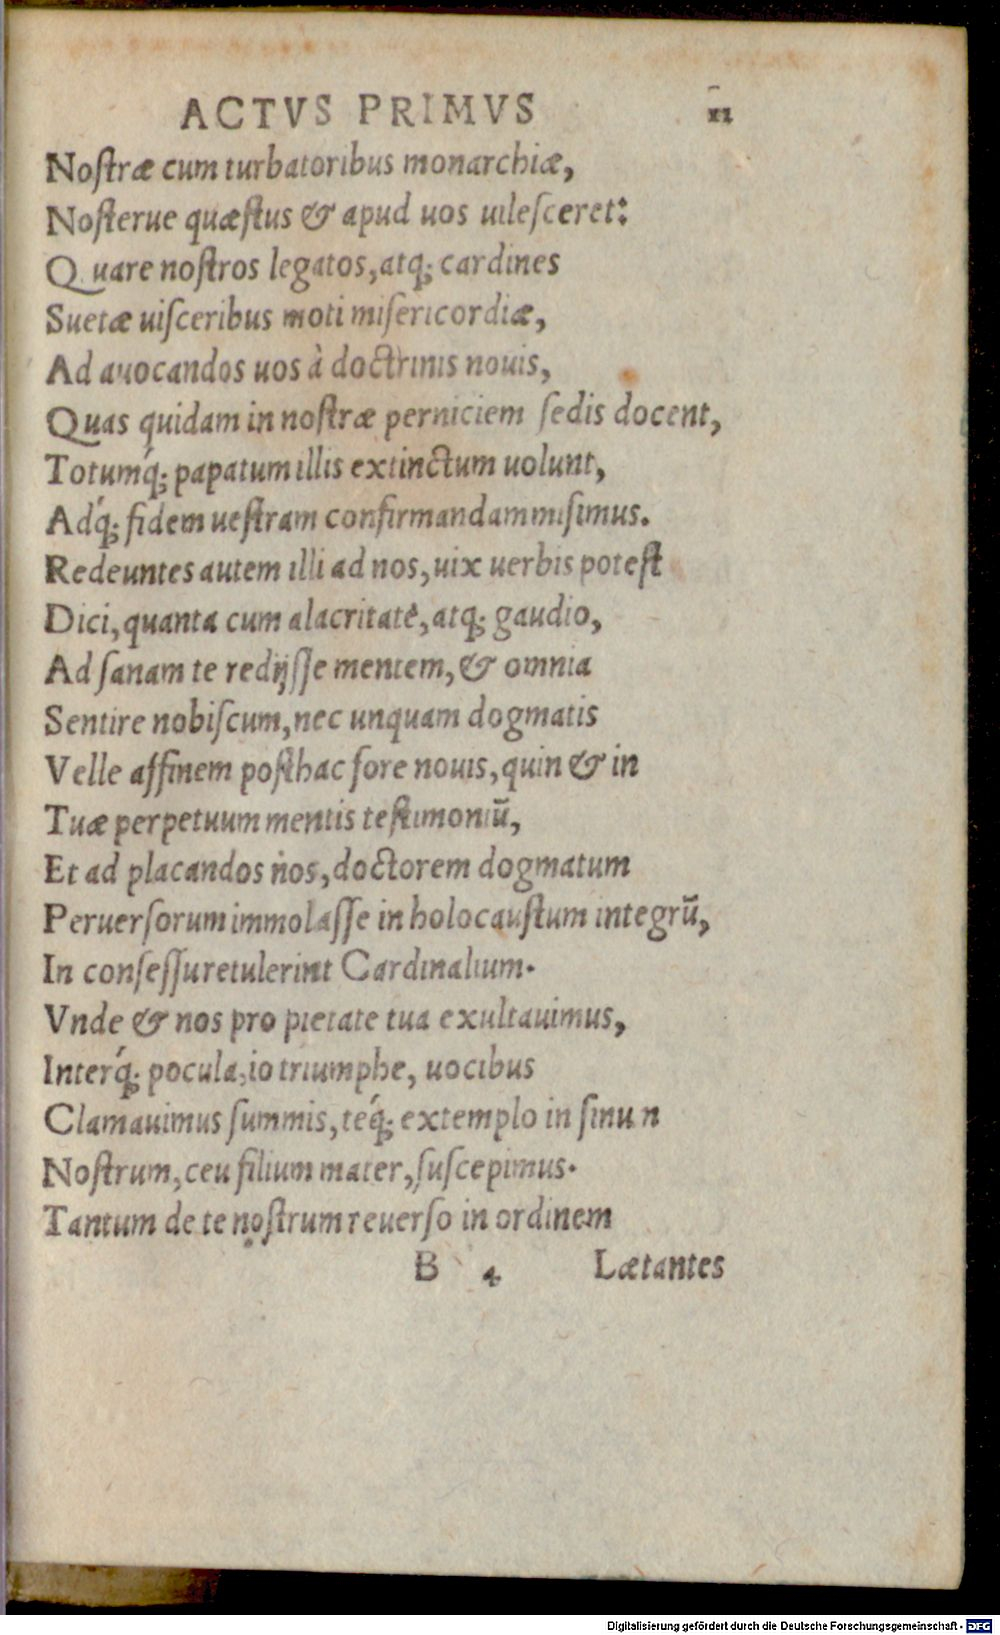 ACTVS PRIMVS 11
Nostræ cum turbatoribus monarchiæ,
Nosterue quæstus & apud uos uilesceret:
Quare nostros legatos, atq; cardines
Suetæ uisceribus moti misericordiæ,
Ad auocandos uos à doctrinis nouis,
Quas quidam in nostræ perniciem sedis docent,
Totumq́; papatum illis extinctum uolunt,
Adq́; fidem uestram confirmandam misimus.
Redeuntes autem illi ad nos, uix uerbis potest
Dici, quanta cum alacritate, atq; gaudio,
Ad sanam te redijsse mentem, & omnia
Sentire nobiscum, nec unquam dogmatis
Velle affinem posthac fore nouis, quin & in
Tuæ perpetuum mentis testimoniũ,
Et ad placandos nos, doctorem dogmatum
Peruersorum immolasse in holocaustum integrũ,
In consessu retulerint Cardinalium.
Vnde & nos pro pietate tua exultauimus,
Interq́; pocula, io triumphe, uocibus
Clamauimus summis, teq́; extemplo in sinum
Nostrum, ceu filium mater, suscepimus.
Tantum de te nostrum reuerso in ordinem
B 4 Lætantes
Digitalisierung gefördert durch die Deutsche Forschungsgemeinschaft - DFG